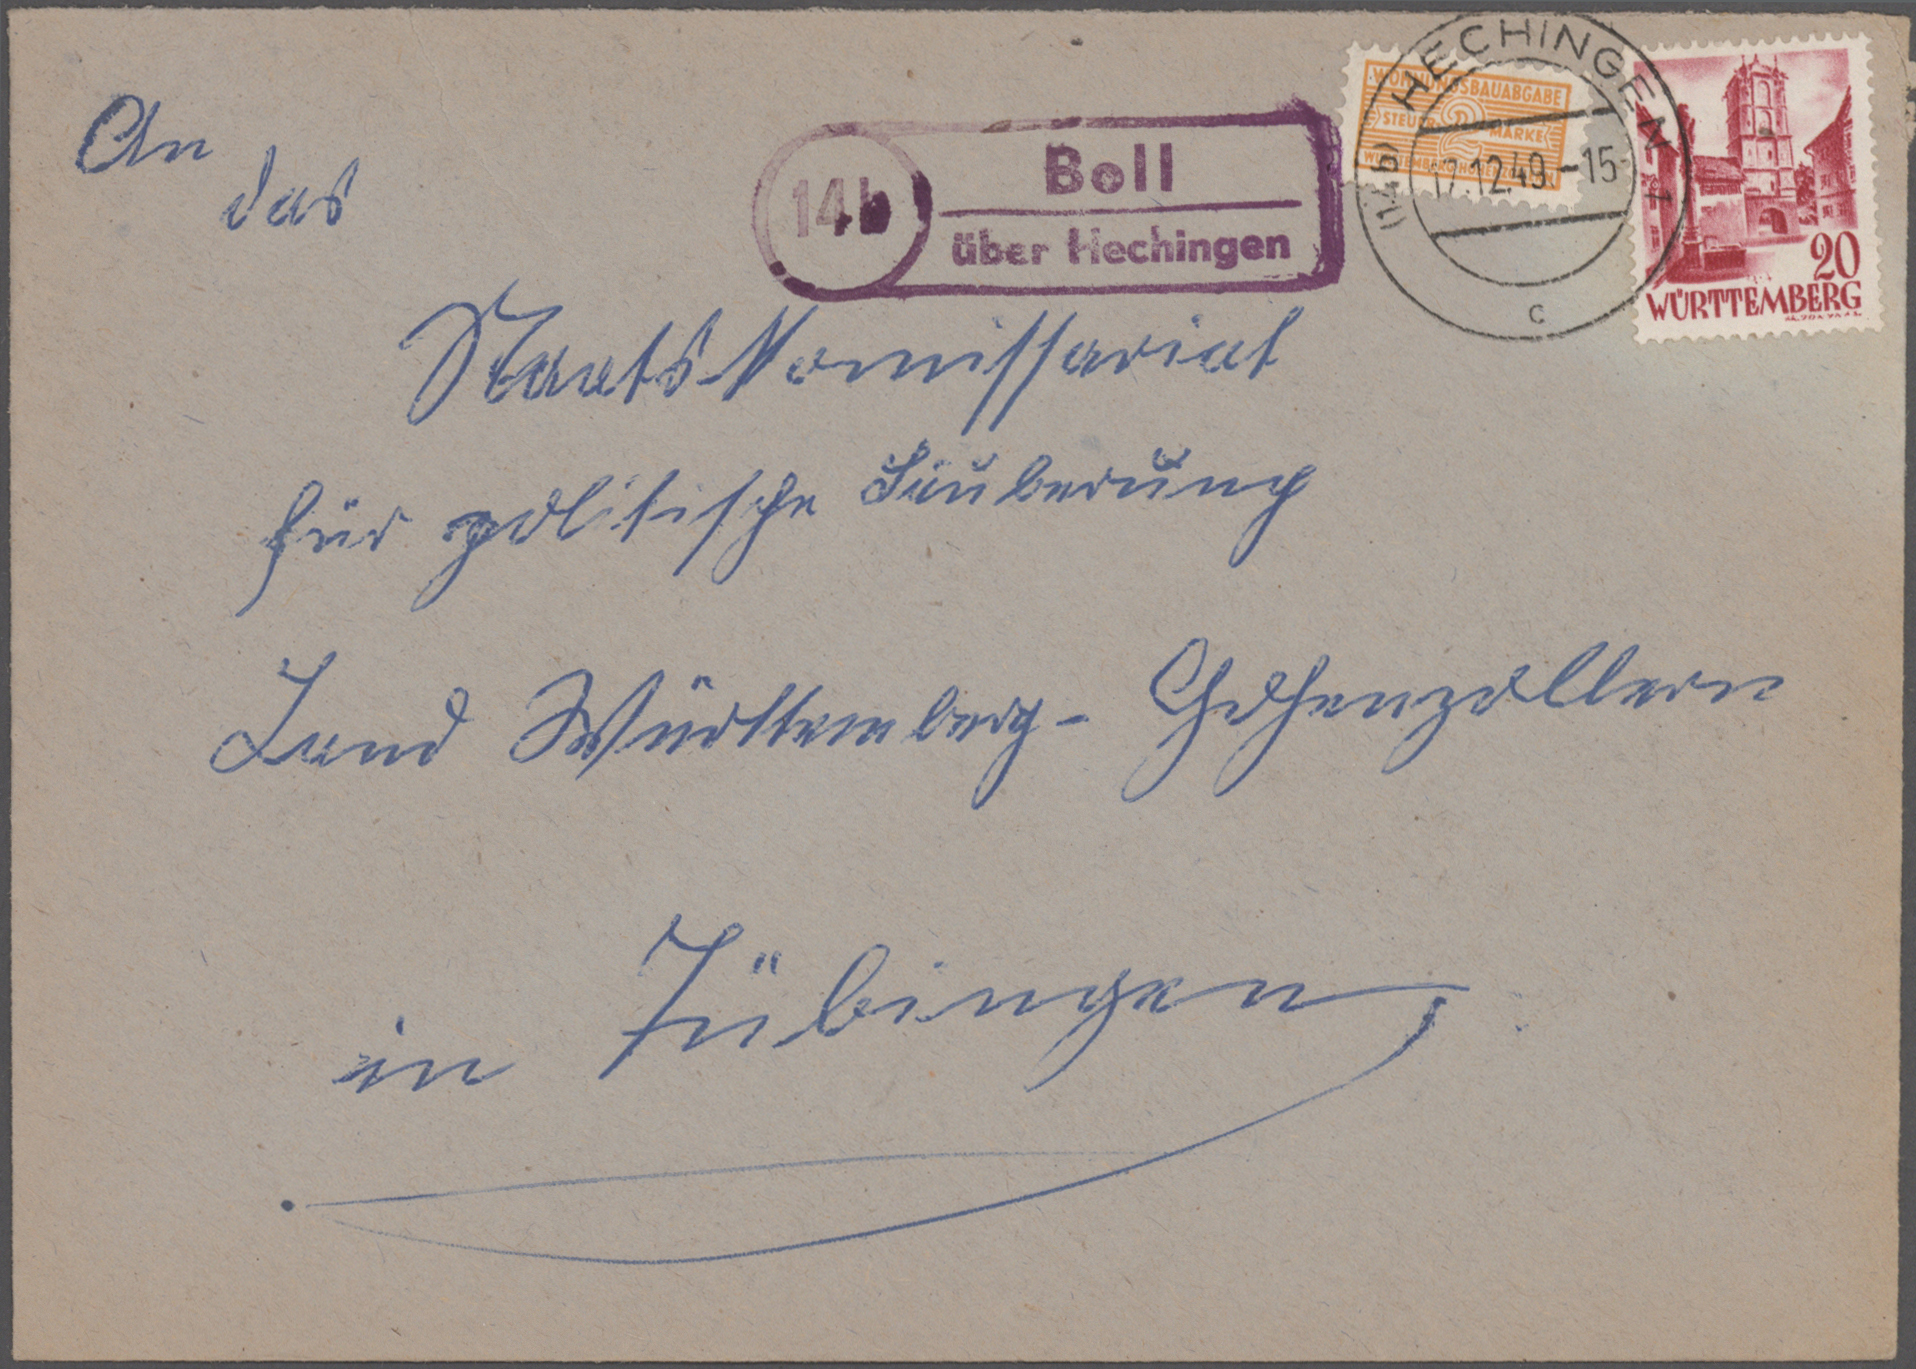 An
das
Staatskomissariat
für politische Säuberung
Land Württemberg-Hohenzollern
in Tübingen
14b
Boll
über Hechingen
WOHNUNGSBAUABGABE
STEUER 2 MARKE
WÜRTTEMBERG HOHENZOLLERN
HECHINGEN 1
(14b)
17.12.49.-15
c
20
WÜRTTEMBERG